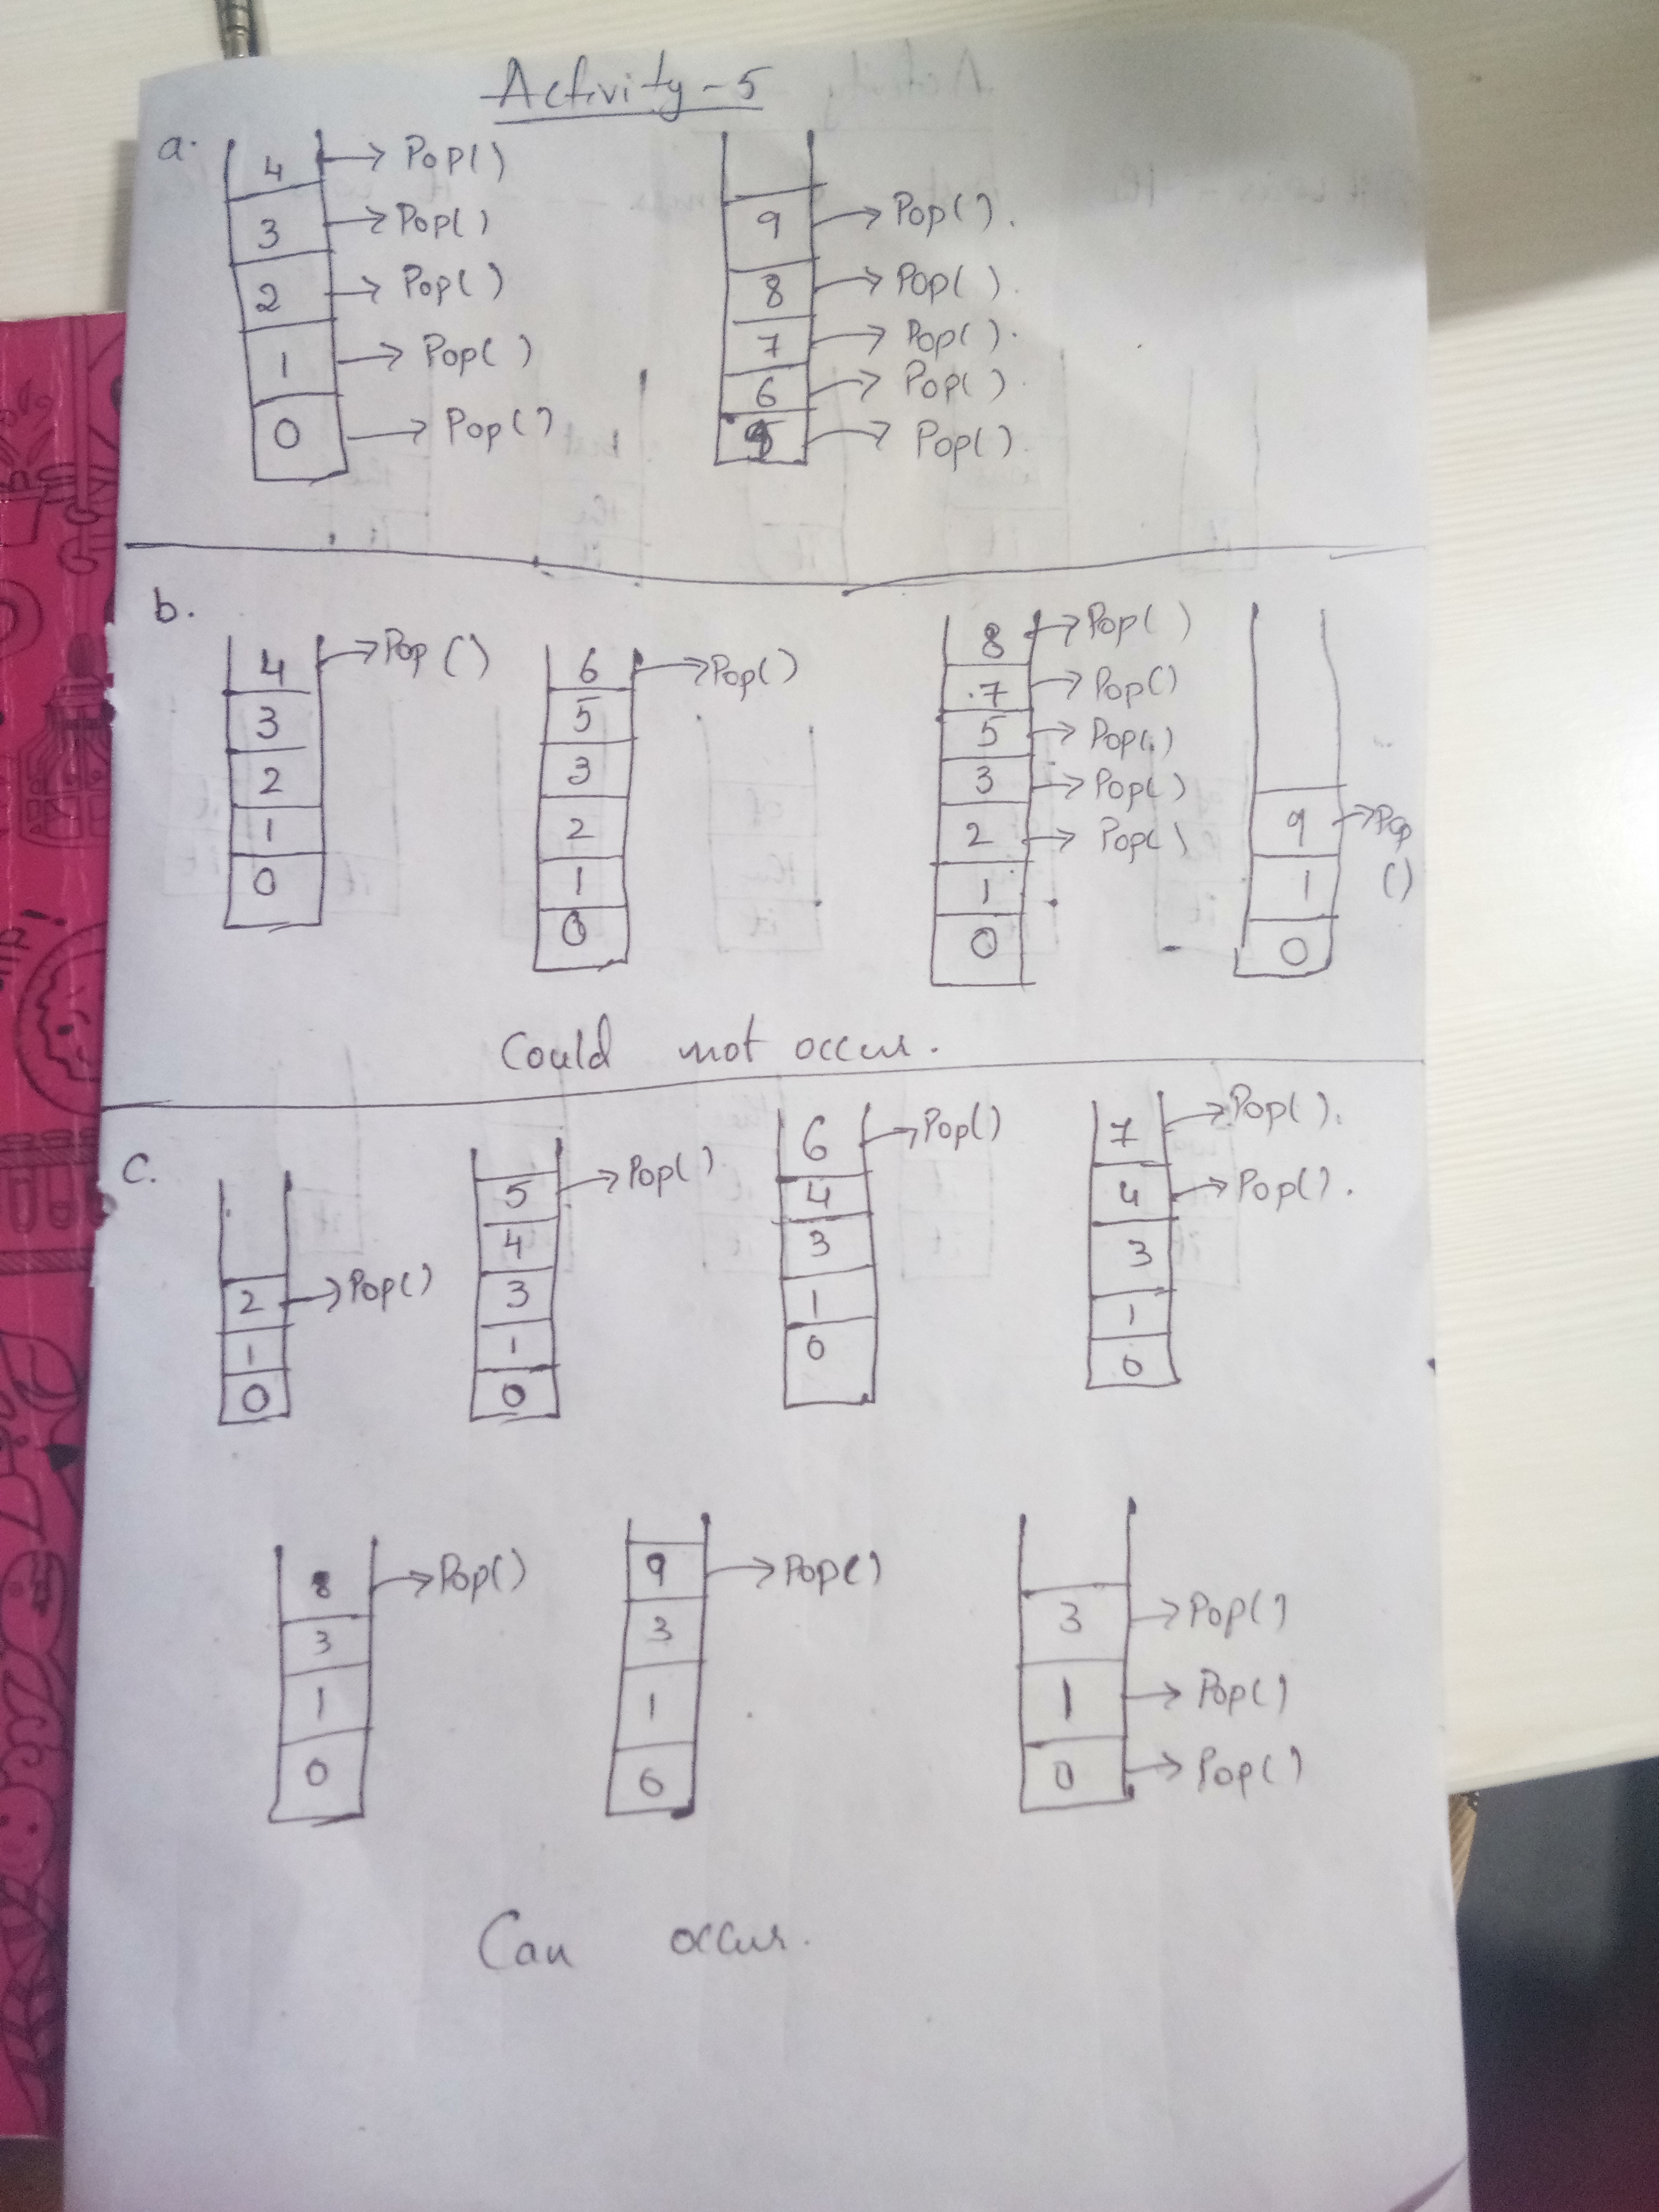 Activity-5
a.
4 → Pop()
3 → Pop()
2 → Pop()
1 → Pop()
0 → Pop()
9 → Pop().
8 → Pop().
7 → Pop().
6 → Pop().
→ Pop().
b.
4 → Pop()
3
2
1
0
6 → Pop()
5
3
2
1
0
8 → Pop()
.7 → Pop()
5 → Pop()
3 → Pop()
2 → Pop()
1
0
9 → Pop
()
1
0
Could not occur.
C.
2 → Pop()
1
0
5 → Pop()
4
3
1
0
6 → Pop()
4
3
1
0
7 → Pop().
4 → Pop().
3
1
0
8 → Pop()
3
1
0
9 → Pop()
3
1
0
3 → Pop()
1 → Pop()
0 → Pop()
Can occur.